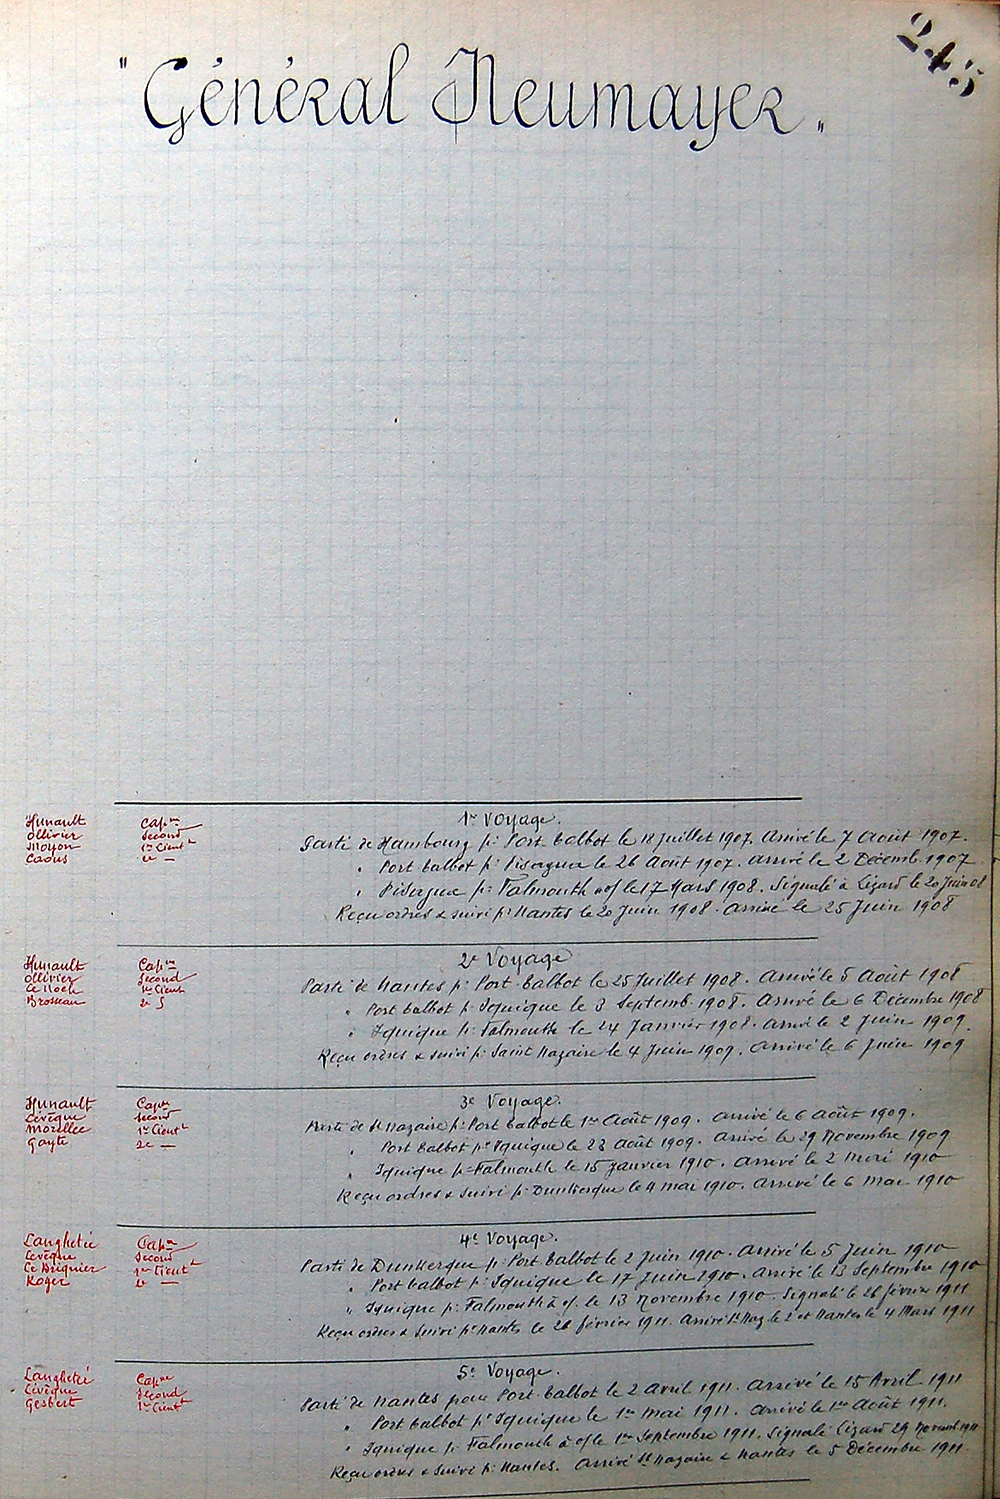 245
"Général Neumayer"
1er Voyage.
Hunault Capne
Ollivier Second
Moyon 1er Lieutt
Caous 2e —
Parti de Hambourg pr Port-Talbot le 18 Juillet 1907. Arrivé le 7 Août 1907.
" Port Talbot pr Pisagua le 26 Août 1907. Arrivé le 2 Décemb. 1907
" Pisagua pr Falmouth aof le 17 Mars 1908. Signalé à Lizard le 20 Juin 08
Reçu ordres & suivi pr Nantes le 20 Juin 1908. Arrivé le 25 Juin 1908
2e Voyage
Hunault Capne
Ollivier Second
Le Noch 1er Lieut
Brosseau 2e
Parti de Nantes pr Port-Talbot le 25 Juillet 1908. Arrivé le 5 Août 1908
" Port Talbot pr Iquique le 3 Septemb. 1908. Arrivé le 6 Décembre 1908
" Iquique pr Falmouth le 24 Janvier 1908. Arrivé le 2 Juin 1909.
Reçu ordres & suivi pr Saint Nazaire le 4 Juin 1909. Arrivé le 6 Juin 1909
3e Voyage.
Hunault Capne
Lévêque Second
Morellec 1er Lieutt
Gayte 2e —
Parti de St Nazaire pr Port Talbot le 1er Août 1909. Arrivé le 6 Août 1909.
" Port Talbot pr Iquique le 23 Août 1909. Arrivé le 29 Novembre 1909
" Iquique pr Falmouth le 15 Janvier 1910. Arrivé le 2 Mai 1910
Reçu ordres & suivi pr Dunkerque le 4 Mai 1910. Arrivé le 6 Mai 1910
4e Voyage.
Langhetée Capne
Lévêque Second
Le Briquier 1er Lieutt
Roger 2e —
Parti de Dunkerque pr Port Talbot le 2 Juin 1910. Arrivé le 5 Juin 1910
" Port Talbot pr Iquique le 17 Juin 1910. Arrivé le 13 Septembre 1910
" Iquique pr Falmouth à of. le 13 Novembre 1910. Signalé le 26 février 1911
Reçu ordres & suivi pr Nantes le 26 février 1911. Arrivé St Naz. le 2 et Nantes le 4 Mars 1911
5e Voyage.
Langhetée Capne
Lévêque Second
Gesbert 1er Lieutt
Parti de Nantes pour Port-Talbot le 2 Avril 1911. Arrivé le 15 Avril 1911
" Port Talbot pr Iquique le 1er Mai 1911. Arrivé le 1er Août 1911.
" Iquique pr Falmouth à of le 1er Septembre 1911. Signalé Lizard 29 Novemb. 1911
Reçu ordres & suivi pr Nantes. Arrivé St Nazaire & Nantes le 5 Décembre 1911.